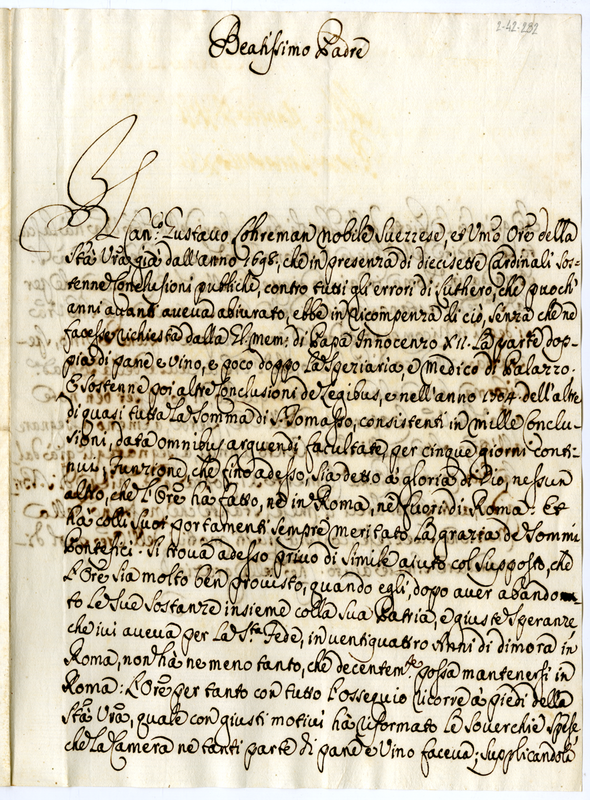 2-42-282
Beatissimo Padre
Gian: Gustavo Lohreman nobile Suezzese, et Umo Ore della
Stà Vra, già dall'anno 1698, che in presenza di diecisette Cardinali sos-
tenne Conclusioni publiche, contro tutti gli errori di Luthero, che puochi
anni avanti aveva abiurato, ebbe in ricompenza di ciò, senza che ne
facesse richiesta dalla El: Mem: di Papa Innocenzo XII. La parte dop-
pia di pane e vino, e poco doppo La Speziaria, e Medico di Palazzo.
E sostenne poi altre Conclusioni de Legibus, e nell'anno 1704 dell'altre
di quasi tutta La Somma di S. Tomasso, consistenti in mille Conclu-
sioni, data omnibus arguendi facultate, per cinque giorni conti-
nui, funzione, che fino adesso, sia detto à gloria di Dio, nessun
altro, che l'Ore hà fatto, nè in Roma, nè fuori di Roma: Et
hà colli suoi portamenti sempre meritato La grazia de Sommi
Pontefici. Si trova adesso privo di simile aiuto col supposto, che
L'Ore sia molto ben provisto, quando egli, dopo aver abando
to Le sue sostanze insieme colla sua Patria, e giuste speranze
che ivi aveva per La Sta Fede, in ventiquattro Anni di dimora in
Roma, non hà ne meno tanto, che decentemte possa mantenersi in
Roma: L'Ore per tanto con tutto l'ossequio ricorre à piedi della
Stà Vra, quale con giusti motivi hà riformato Le soverchie spese
che La Camera ne tanti parte di pane e vino faceva; supplicandola